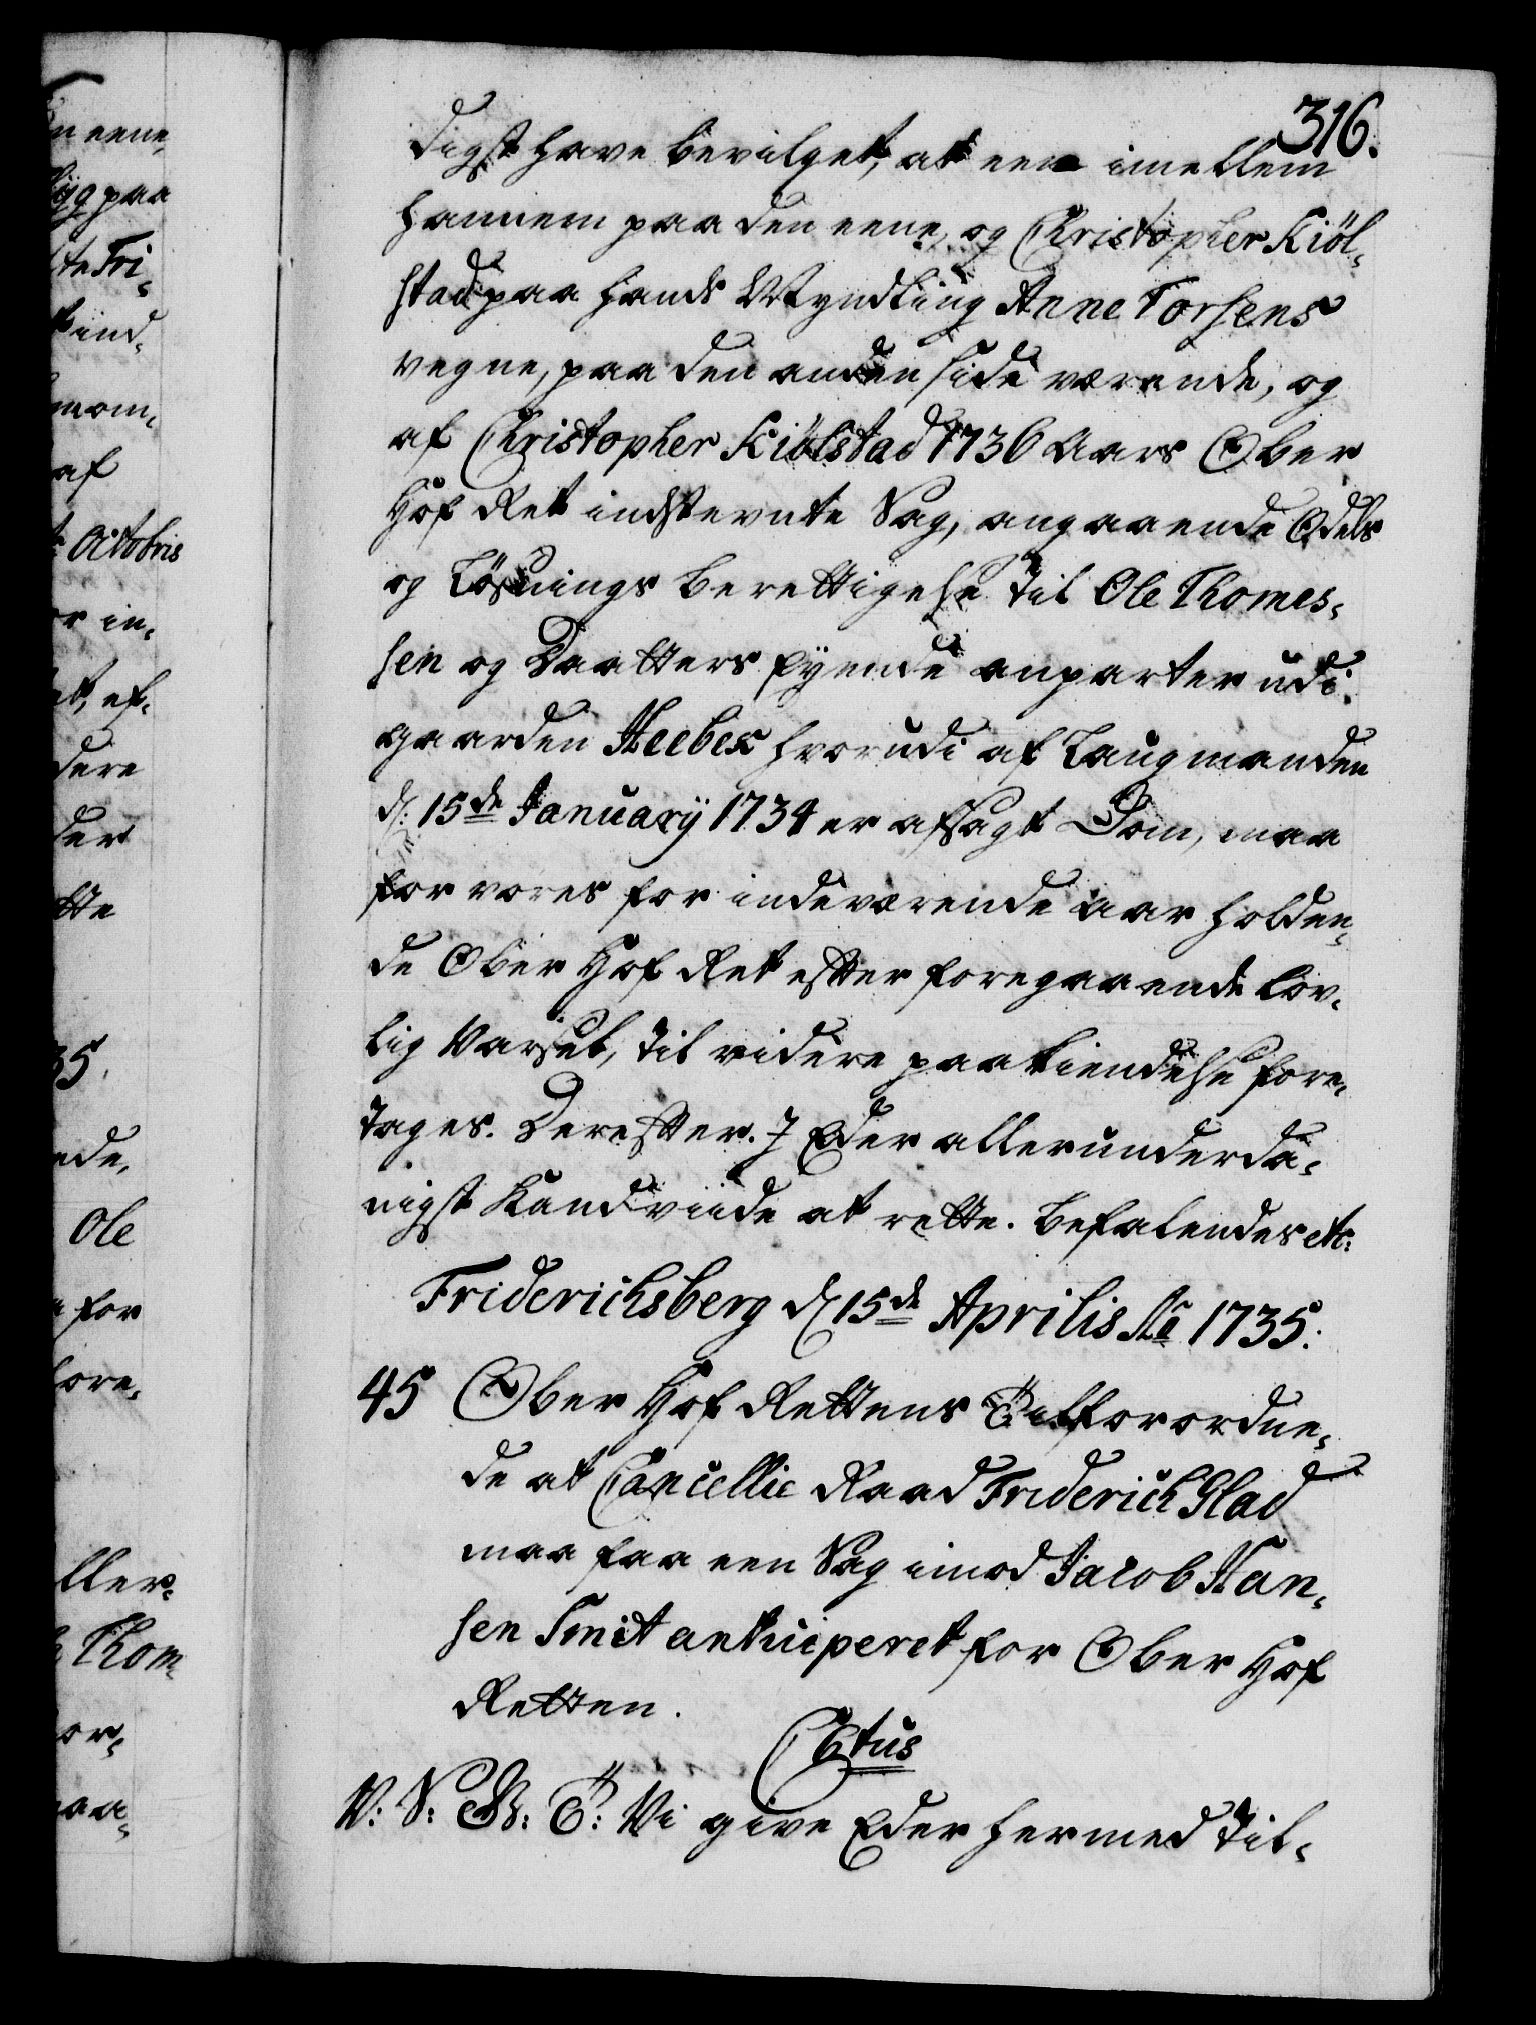 316.
digst have bevilget, at een imellem
hannem paa den eene, og Christopher Kiöl-
stad paa hands Myndling Anne Torsens
vegne, paa den anden side værende, og
af Christopher Kiölstad 1736 Aars Ober
Hof Ret indstevnte Sag, angaaende Odels
og Lösnings berettigelse til Ole Thomes-
sen og Daatters Eyende anparter udi
gaarden Heebek hvorudi af Laugmanden
d: 15de January 1734 er afsagt Dom, maa
for vores for indeværende aar holden-
de Ober Hof Ret efter foregaaende lov-
lig Varsel, til videre paakiendelse fore-
tages. Derefter I Eder allerunderda-
nigst kand viide at rette. Befalendes etc:
Friderichsberg d 15de Aprilis Ao 1735.
45 Ober Hof Rettens Tilforordne-
de at Cancellie Raad Friderich Glad
maa faa een Sag imod Jacob Han-
sen Smit anticiperet for Ober Hof
Retten.
C6tus
V: S: G: T: Vi give Eder hermed til-
n eene,
paa
te Fri-
ind-
af
Octobris
or in-
ef-
dere
der
tte
35.
ede,
Ole
for
fore-
ller-
Thom-
or-